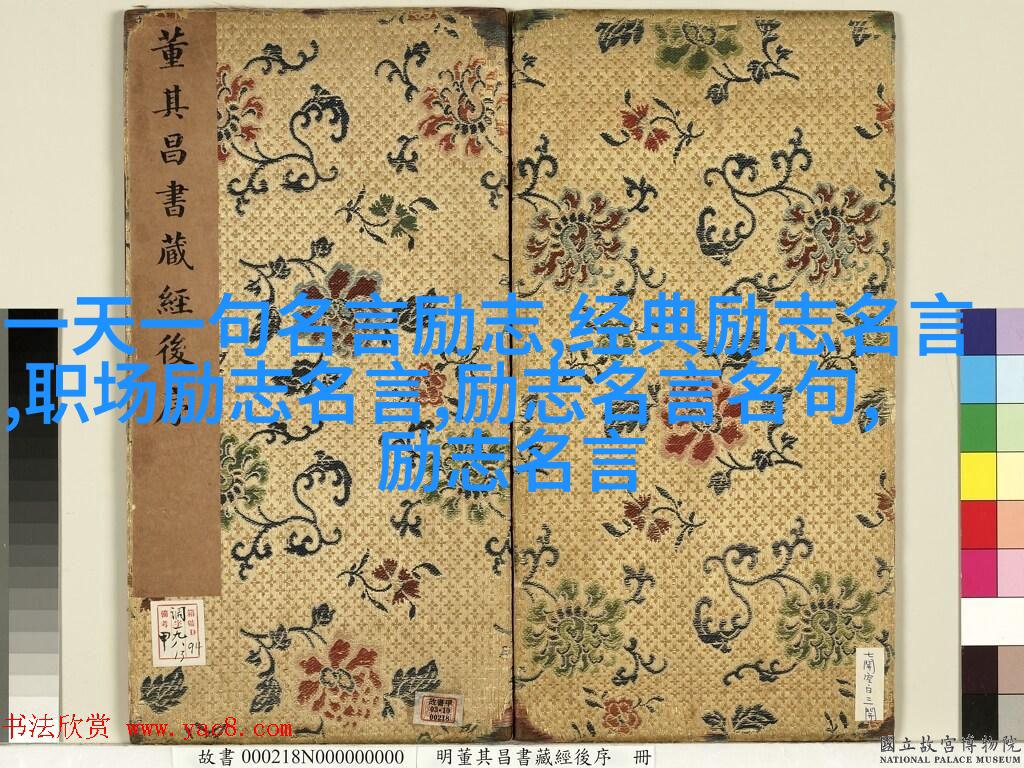 董其昌書藏經後序
一天一句名言励志,经典励志名言
,职场励志名言,励志名言名句,
励志名言
故書甲
03•10
00218
七開空白三開
书法欣赏 www.yac8.com
故書 000218N000000000
明董其昌書藏經後序 冊
國立故宮博物院
NATIONAL PALACE MUSEUM